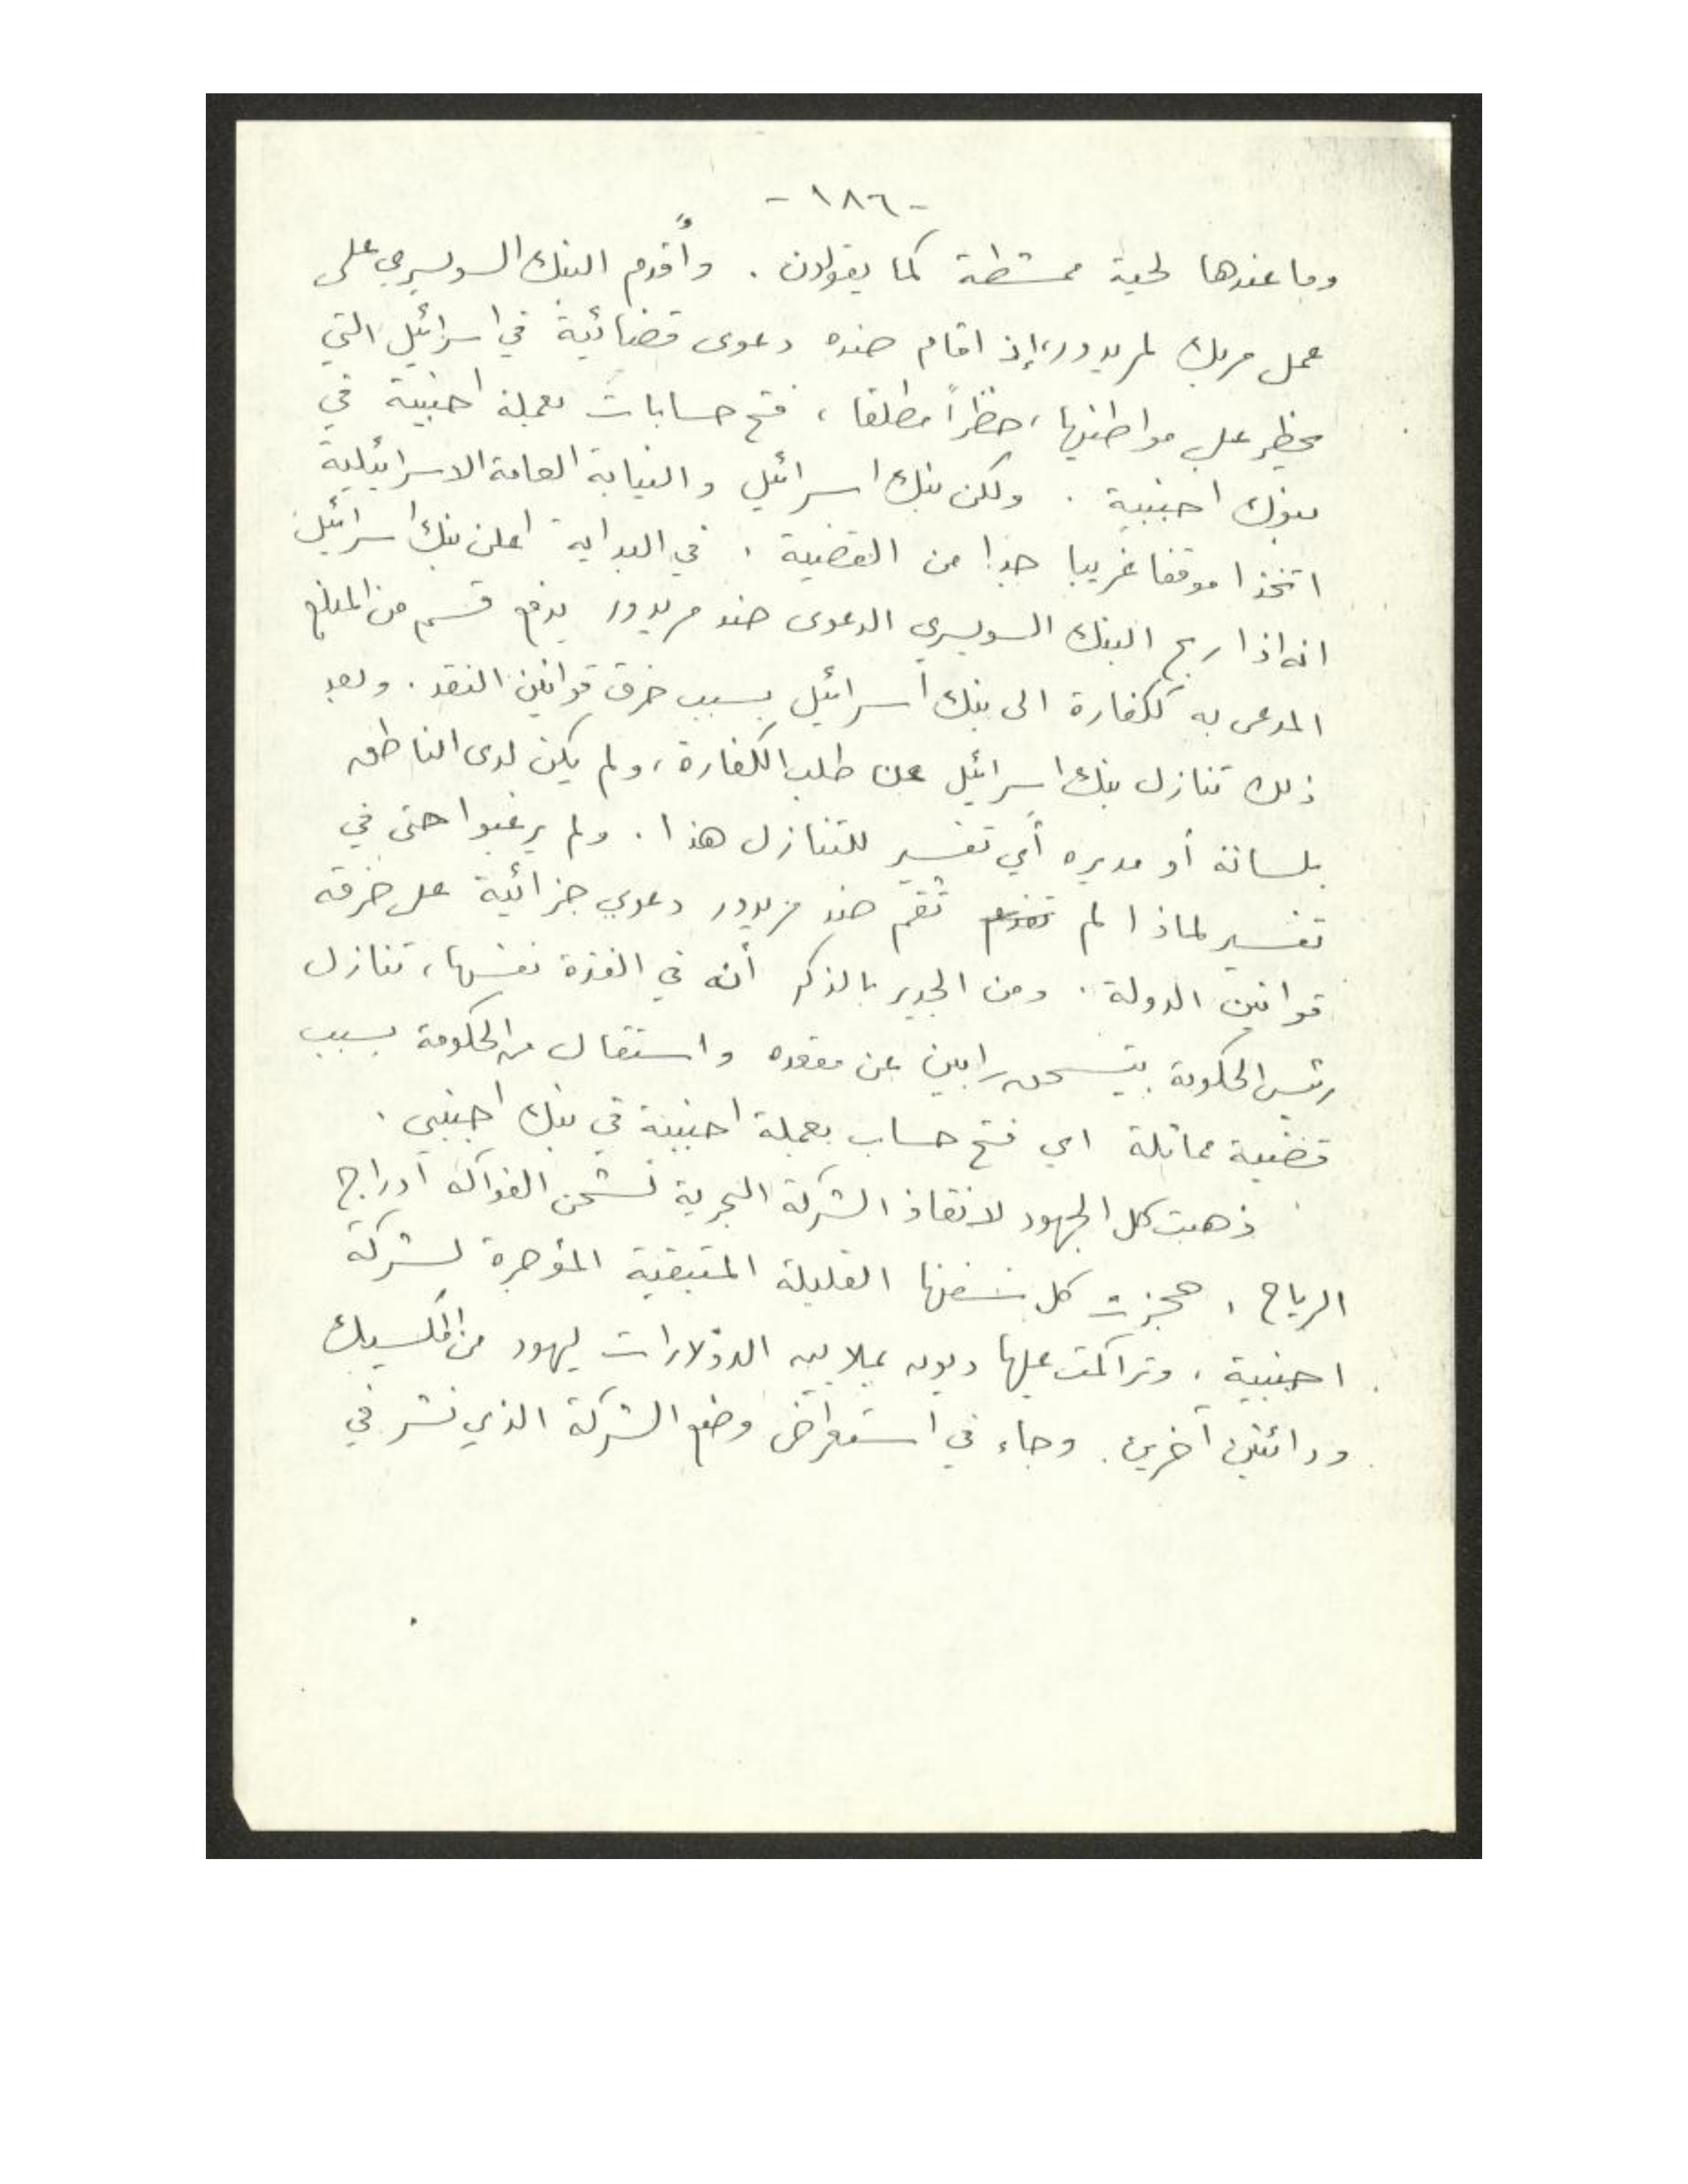 - ١٨٦ -
وما عندها لحية ممشطة كما يقولون . وأقدم البنك السويسري على
عمل مربك لمريدور، إذ اقام ضده دعوى قضائية في اسرائيل التي
يحظر على مواطنيها ، حظراً مطلقا ، فتح حسابات بعملة اجنبية في
بنوك اجنبية . ولكن بنك اسرائيل والنيابة العامة الاسرائيلية
اتخذا موقفا غريبا جدا من القضية . في البداية اعلن بنك اسرائيل
انه اذا ربح البنك السويسري الدعوى ضد مريدور يدفع قسم من المبلغ
المدعى به ككفارة الى بنك اسرائيل بسبب خرق قوانين النقد . وبعد
ذلك تنازل بنك اسرائيل عن طلب الكفارة ، ولم يكن لدى الناطق
بلسانه أو مديره أي تفسير للتنازل هذا . ولم يرغبوا حتى في
تفسير لماذا لم تقم ضد مريدور دعوى جزائية على خرقه
قوانين الدولة . ومن الجدير بالذكر أنه في الفترة نفسها ، تنازل
رئيس الحكومة يتسحق رابين عن مقعده واستقال من الحكومة بسبب
قضية مماثلة اي فتح حساب بعملة اجنبية في بنك اجنبي .
ذهبت كل الجهود لانقاذ الشركة البحرية لشحن الفواكه أدراج
الرياح . حجزت كل سفنها القليلة المتبقية المؤجرة لشركة
اجنبية ، وتراكمت عليها ديون بملايين الدولارات ليهود من المكسيك
ودائنين آخرين . وجاء في استعراض وضع الشركة الذي نشر في